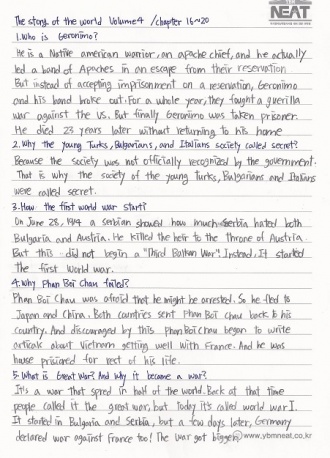 The story of the world Volume4 /chapter 16~20
NEAT
1.Who is Geronimo?
He is a Native american warrior, an apache chief, and he actually
led a band of Apaches in an escape from their reservation
But instead of accepting imprisonment on a reservation, Geronimo
and his band broke out. For a whole year, they fought a guerilla
war against the US. But finally Geronimo was taken prisoner.
He died 23 years later without returning to his home
2.Why the young Turks, Bulgarians, and Italians society called secret?
Because the society was not officially recognized by the government.
That is why the society of the young Turks, Bulgarians and Italians
were called secret.
3.How the first world war start?
On June 28, 1914 a serbian showed how much Serbia hated both
Bulgaria and Austria. He killed the heir to the throne of Austria
But this did not begin a "Third Balkan War". Instead, It started
the first World war.
4.Why Phan Boi Chau failed?
Phan Boi Chau was afraid that he might be arrested. So he fled to
Japan and China. Both countries sent Phan Boi Chau back to his
country. And discouraged by this phan boi chau began to write
articals about Vietnam getting well with France. And he was
house prisioned for rest of his life.
5.What is Great War? And why it became a war?
It's a war that spred in half of the world. Back at that time
people called it the great war, but Today it's called world war I.
It started in Bulgaria and Serbia, but a few days later, Germany
declared war against France too! The war got bigger
www.ybmneat.co.kr